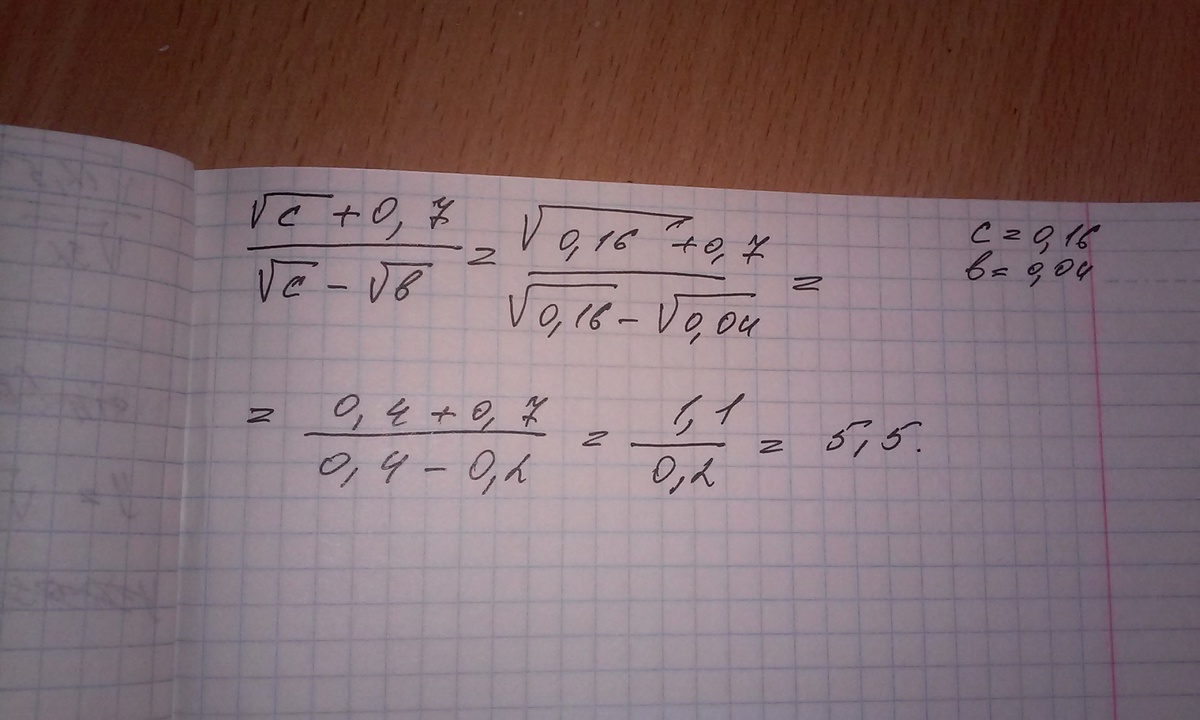 (√c + 0,7)/(√c − √в) = (√0,16 + 0,7)/(√0,16 − √0,04) =
c = 0,16
в = 0,04
= (0,4 + 0,7)/(0,4 − 0,2) = 1,1/0,2 = 5,5.